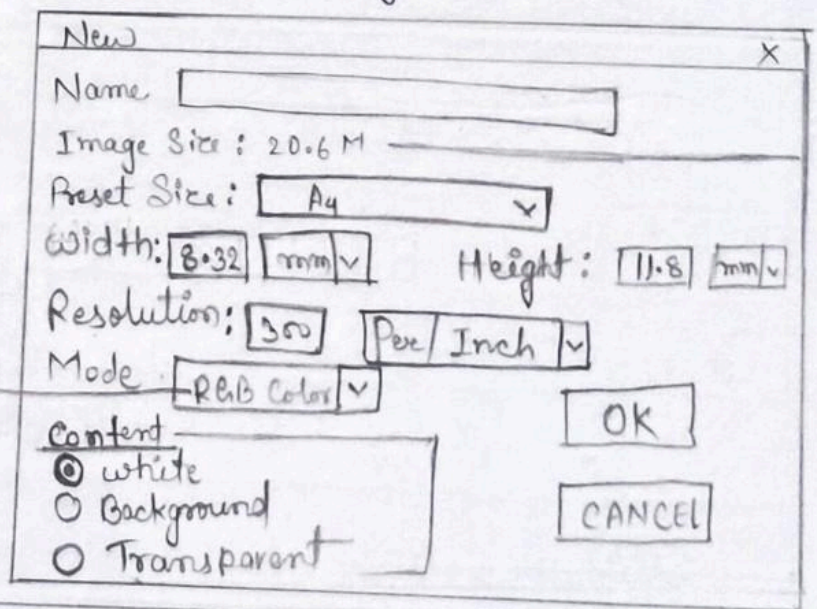 New X
Name
Image Size : 20.6 M
Preset Size : A4
Width: 8.32 mm Height : 11.8 mm
Resolution: 300 Per / Inch
Mode RGB Color
OK
Content
white
Background
CANCEL
Transparent